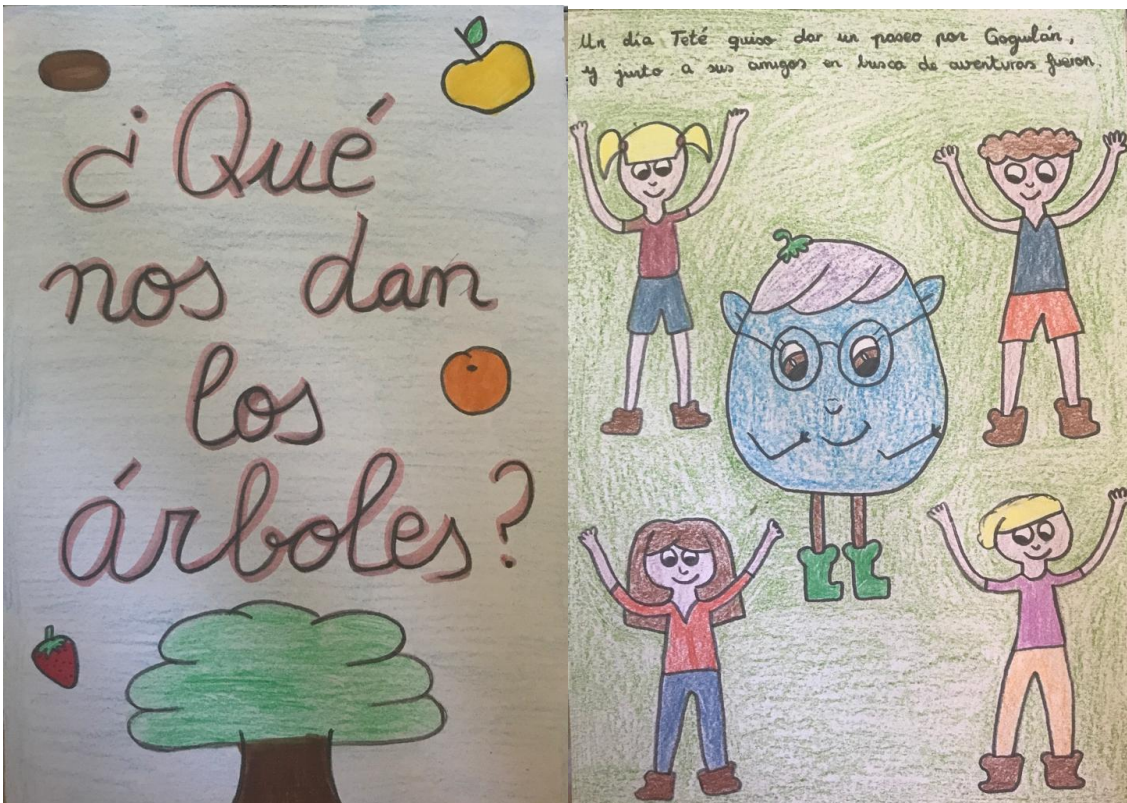 ¿Qué
nos dan
los
árboles?
Un día Teté quiso dar un paseo por Gogulán,
y justo a sus amigos en busca de aventuras fueron.